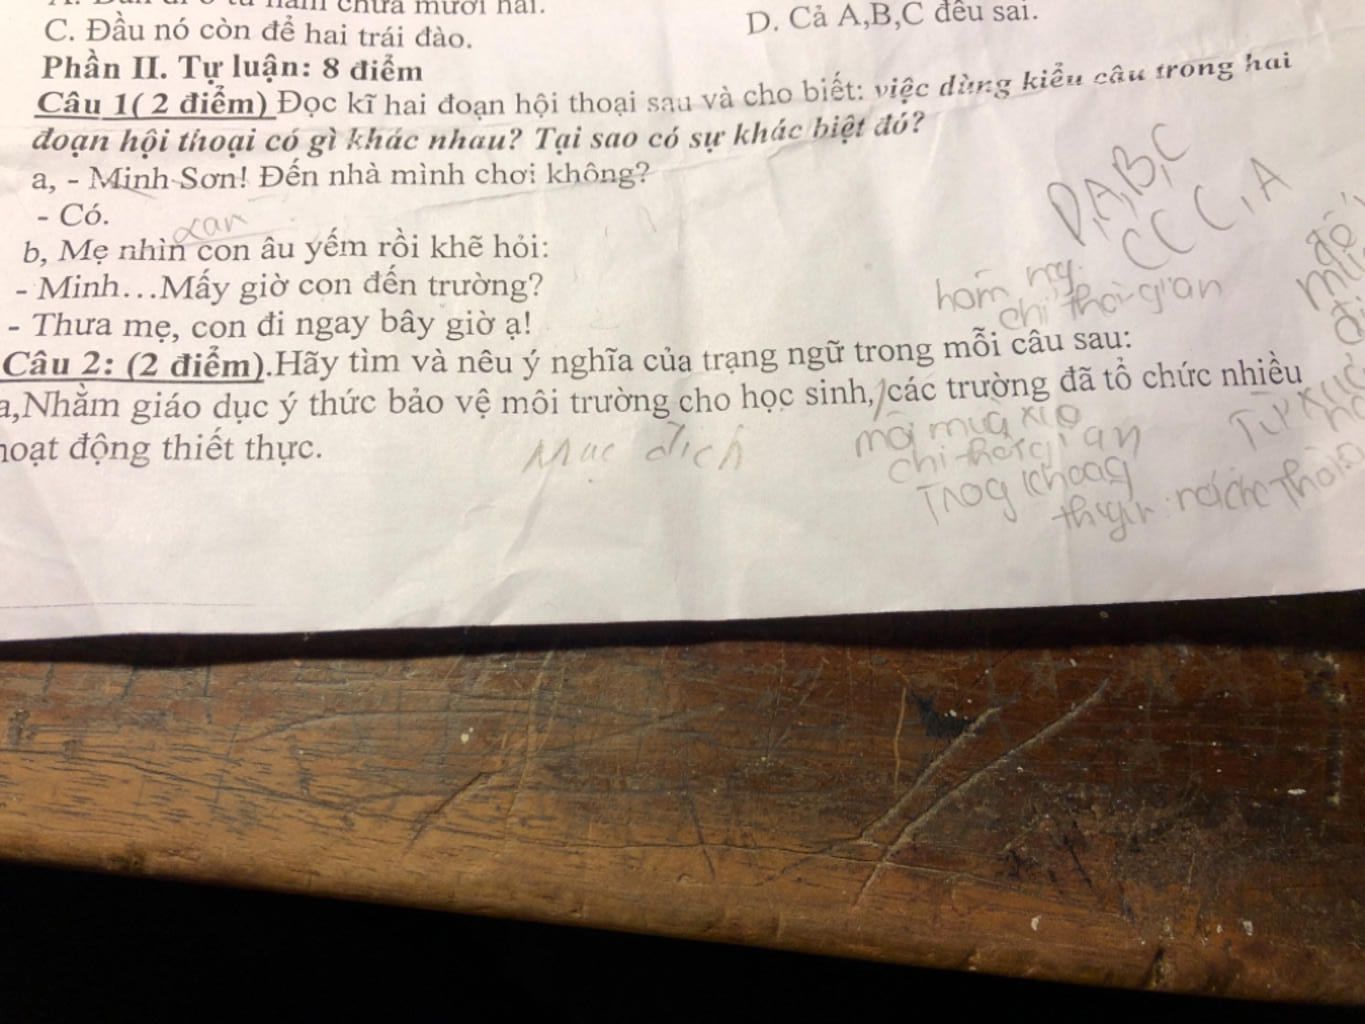 C. Đầu nó còn để hai trái đào.
D. Cả A,B,C đều sai.
Phần II. Tự luận: 8 điểm
Câu 1( 2 điểm) Đọc kĩ hai đoạn hội thoại sau và cho biết: việc dùng kiểu câu trong hai
đoạn hội thoại có gì khác nhau? Tại sao có sự khác biệt đó?
a, - Minh Sơn! Đến nhà mình chơi không?
- Có.
b, Mẹ nhìn con âu yếm rồi khẽ hỏi:
- Minh…Mấy giờ con đến trường?
- Thưa mẹ, con đi ngay bây giờ ạ!
Câu 2: (2 điểm).Hãy tìm và nêu ý nghĩa của trạng ngữ trong mỗi câu sau:
a,Nhằm giáo dục ý thức bảo vệ môi trường cho học sinh, các trường đã tổ chức nhiều
hoạt động thiết thực.
D,A,B,C
C C C, A
hôm
chỉ thời gian
Mục đích
chỉ thời gian